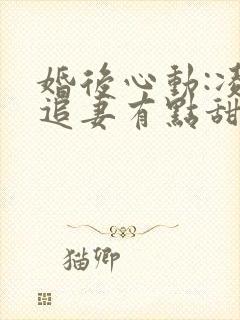 婚後心動:凌
追妻有點甜
猫卿